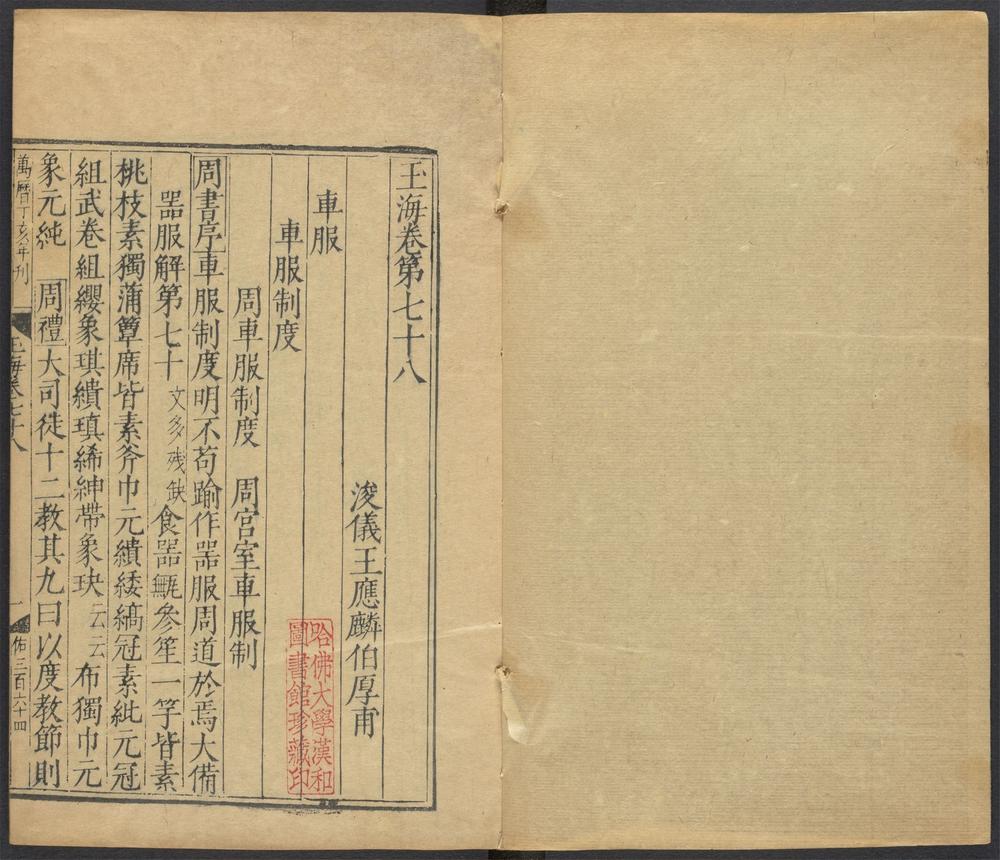 玉海卷第七十八
浚儀王應麟伯厚甫
車服
車服制度
周車服制度 周宮室車服制
周書序車服制度明不苟踰作器服周道於焉大備
器服解第七十文多殘缺食器甒參笙一竽皆素
桃枝素獨蒲簟席皆素斧巾元繢緌縞冠素紕元冠
組武卷組纓象琪繢瑱絺紳帶象玦云云布獨巾元
象元純 周禮大司徒十二教其九曰以度教節則
萬曆丁亥年刊
玉海卷七十八
一
佑三百六十四
哈佛大學漢和
圖書館珍藏印